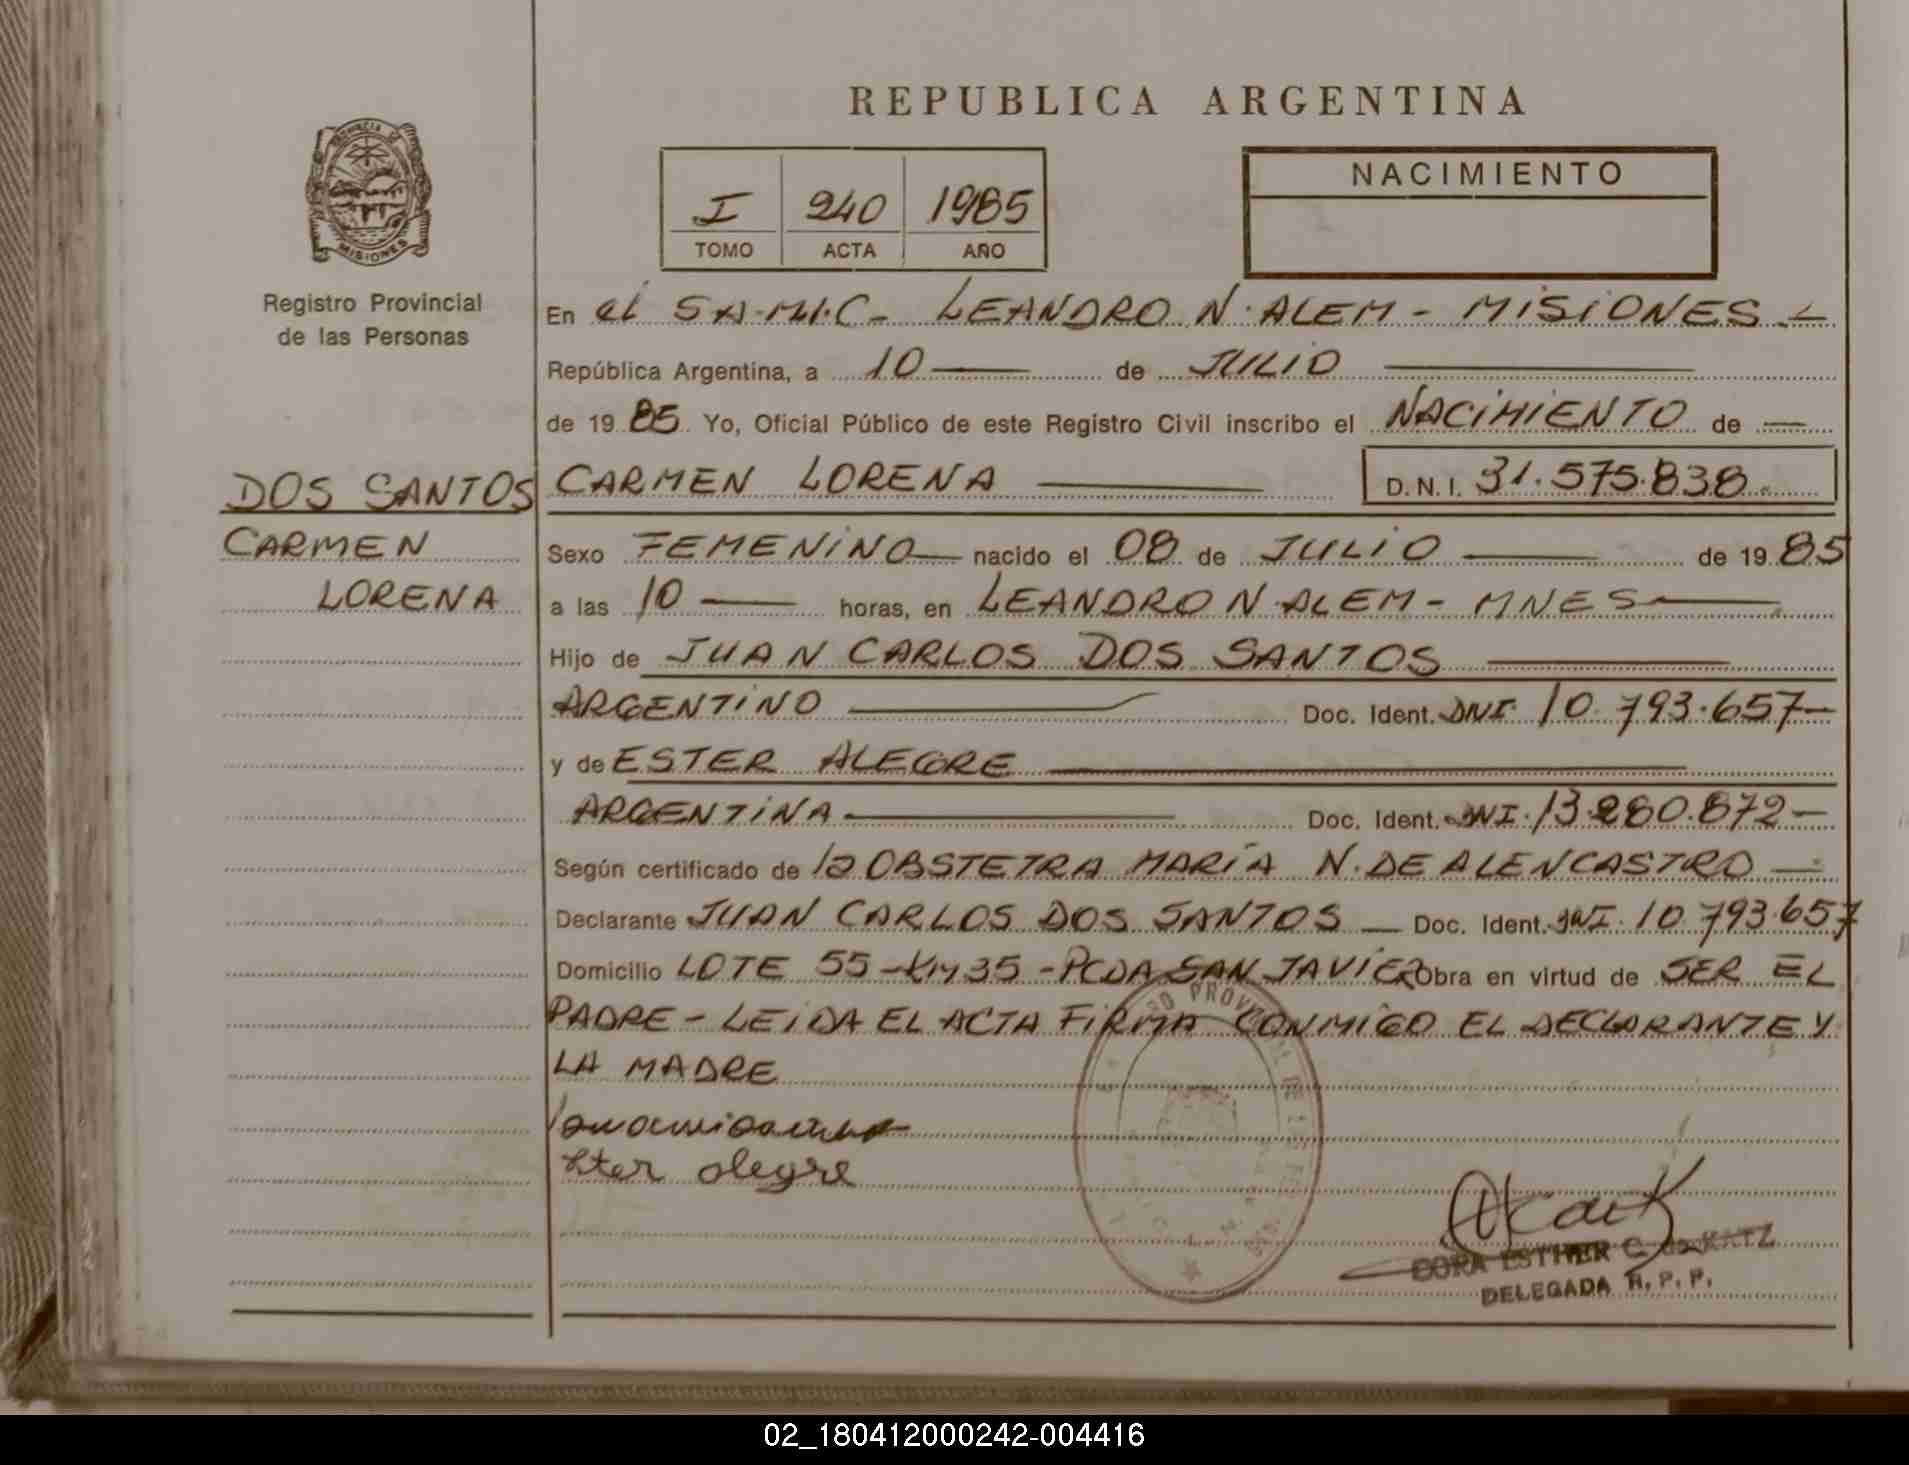 REPUBLICA ARGENTINA
PROVINCIA DE
MISIONES
Registro Provincial
de las Personas
I 240 1985
TOMO ACTA AÑO
NACIMIENTO
En el S.A.M.I.C- LEANDRO N. ALEM - MISIONES.-
República Argentina, a 10 — de JULIO —
de 1985 Yo, Oficial Público de este Registro Civil inscribo el NACIMIENTO de —
DOS SANTOS CARMEN LORENA — D.N.I. 31.575.838.
CARMEN
LORENA
Sexo FEMENINO — nacido el 08 de JULIO — de 1985
a las 10 — horas, en LEANDRO N. ALEM - MNES —
Hijo de JUAN CARLOS DOS SANTOS —
ARGENTINO — Doc. Ident. DNI. 10.793.657-
y de ESTER ALEGRE —
ARGENTINA — Doc. Ident. DNI. 13.280.872-
Según certificado de la OBSTETRA MARÍA N. DE ALENCASTRO —
Declarante JUAN CARLOS DOS SANTOS — Doc. Ident. DNI. 10.793.657
Domicilio LOTE 55 - KM 35 - PCDA SAN JAVIER Obra en virtud de SER EL
PADRE - LEIDA EL ACTA FIRMA CONMIGO EL DECLARANTE Y
LA MADRE
Ester Alegre
DORA ESTHER C. de KATZ
DELEGADA R. P. P.
02_180412000242-004416